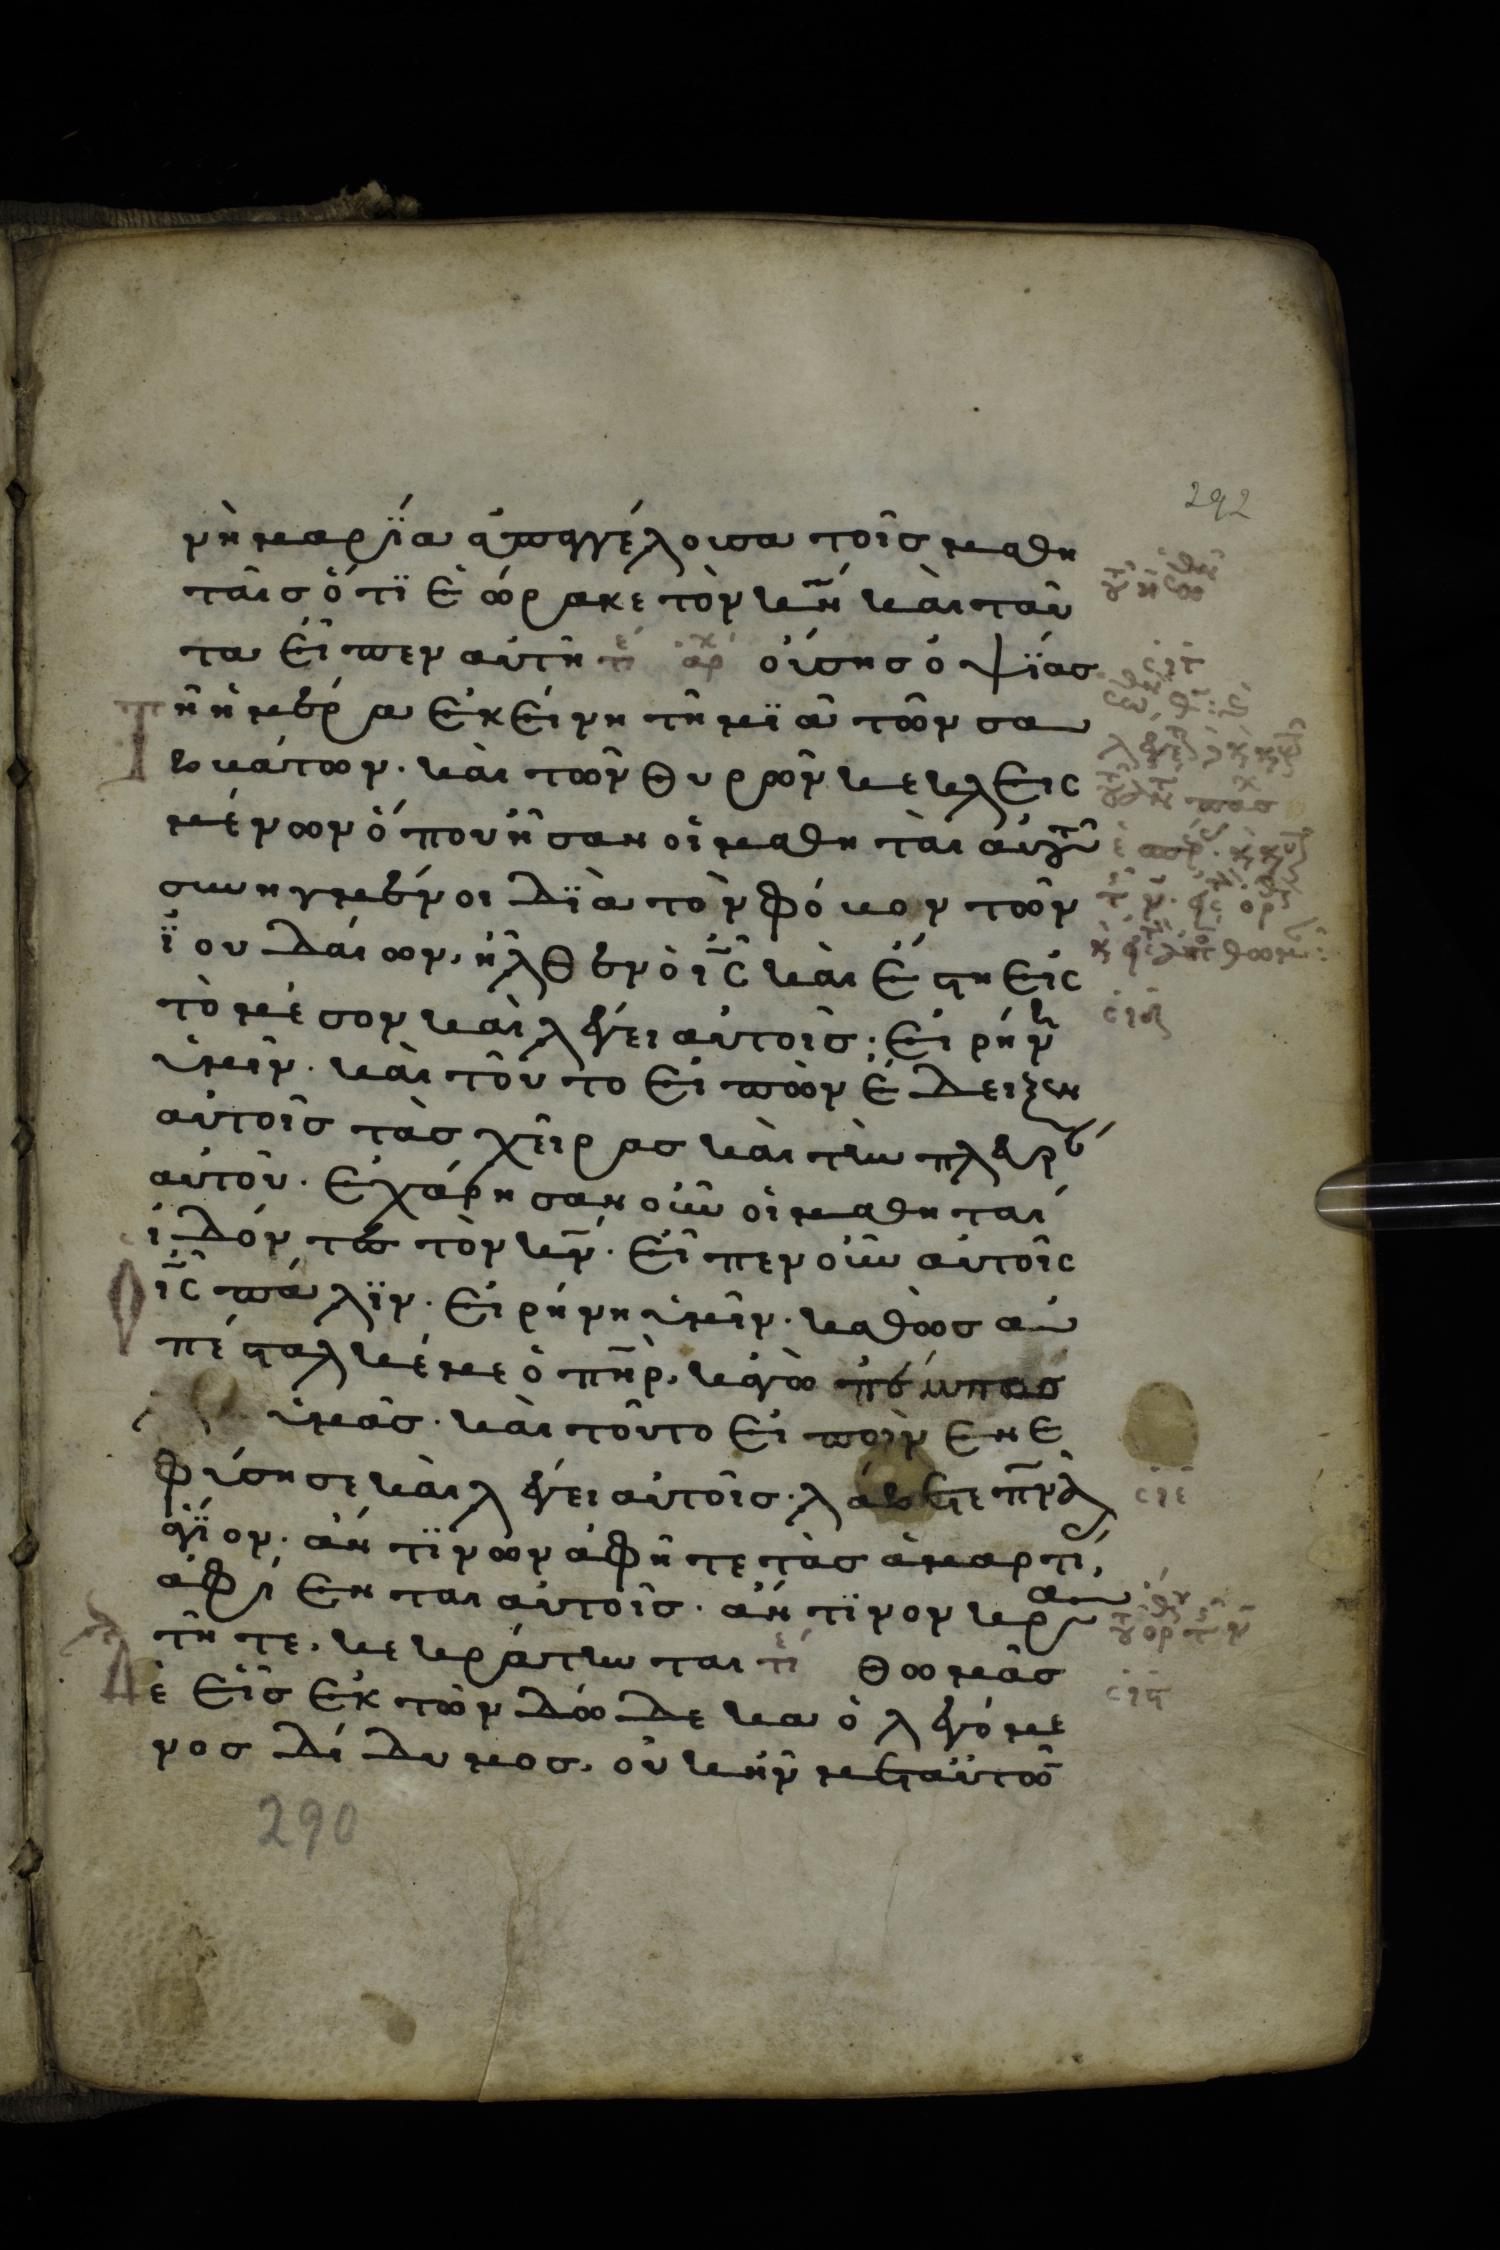 292
νὴ μαρΐα ἀπαγγέλουσα τοῖς μαθη
ταῖς ὅτϊ ἑώρακε τὸν κ̅ν̅ καὶ ταῦ
τα εἶπεν αὐτῆ τέ ἀρχ οὔσης ὀψΐας
τῆ ἡμέρα ἐκείνη τῆ μϊᾶ τῶν σα
βάτων· καὶ τῶν θυρρῶν κεκλεισ
μένων ὅπου ἦσαν οἱ μαθηταὶ αὐτοῦ
συνηγμένοι δϊὰ τὸν φόβον τῶν
ϊουδαίων, ἦλθεν ὁ ι̅ς̅ καὶ ἔστη εἰς
τὸ μέσον καὶ λέγει αὐτοῖς· εἰρήνη
ὑμῖν· καὶ τοῦτο εἰπὼν ἔδειξεν
αὐτοῖς τὰς χεῖρας καὶ τὴν πλευρὰν
αὐτοῦ· ἐχάρησαν οὖν οἱ μαθηταί
ἰδόντες τὸν κ̅ν̅· εἶπεν οὖν αὐτοῖς
ὁ ι̅ς̅ πάλϊν· εἰρήνη ὑμῖν· καθὼς ἀ
πέσταλκέ με ὁ π̅η̅ρ̅, καγὼ
ὑμᾶς· καὶ τοῦτο εἰπὼν ἐνε
φύσησε καὶ λέγει αὐτοῖς· λάβετε π̅ν̅α̅
ἅγϊον· ἄν τϊνων ἀφῆτε τὰς ἁμαρτί,
ἀφίενται αὐτοῖς· ἄν τϊνον κρα
τῆτε, κεκράτηνται τέ θωμᾶς
δὲ εἷς ἐκ τῶν δώδεκα ὁ λεγόμε
νος δίδυμος, οὐκ ἦν μετ αὐτῶ
σιε
290